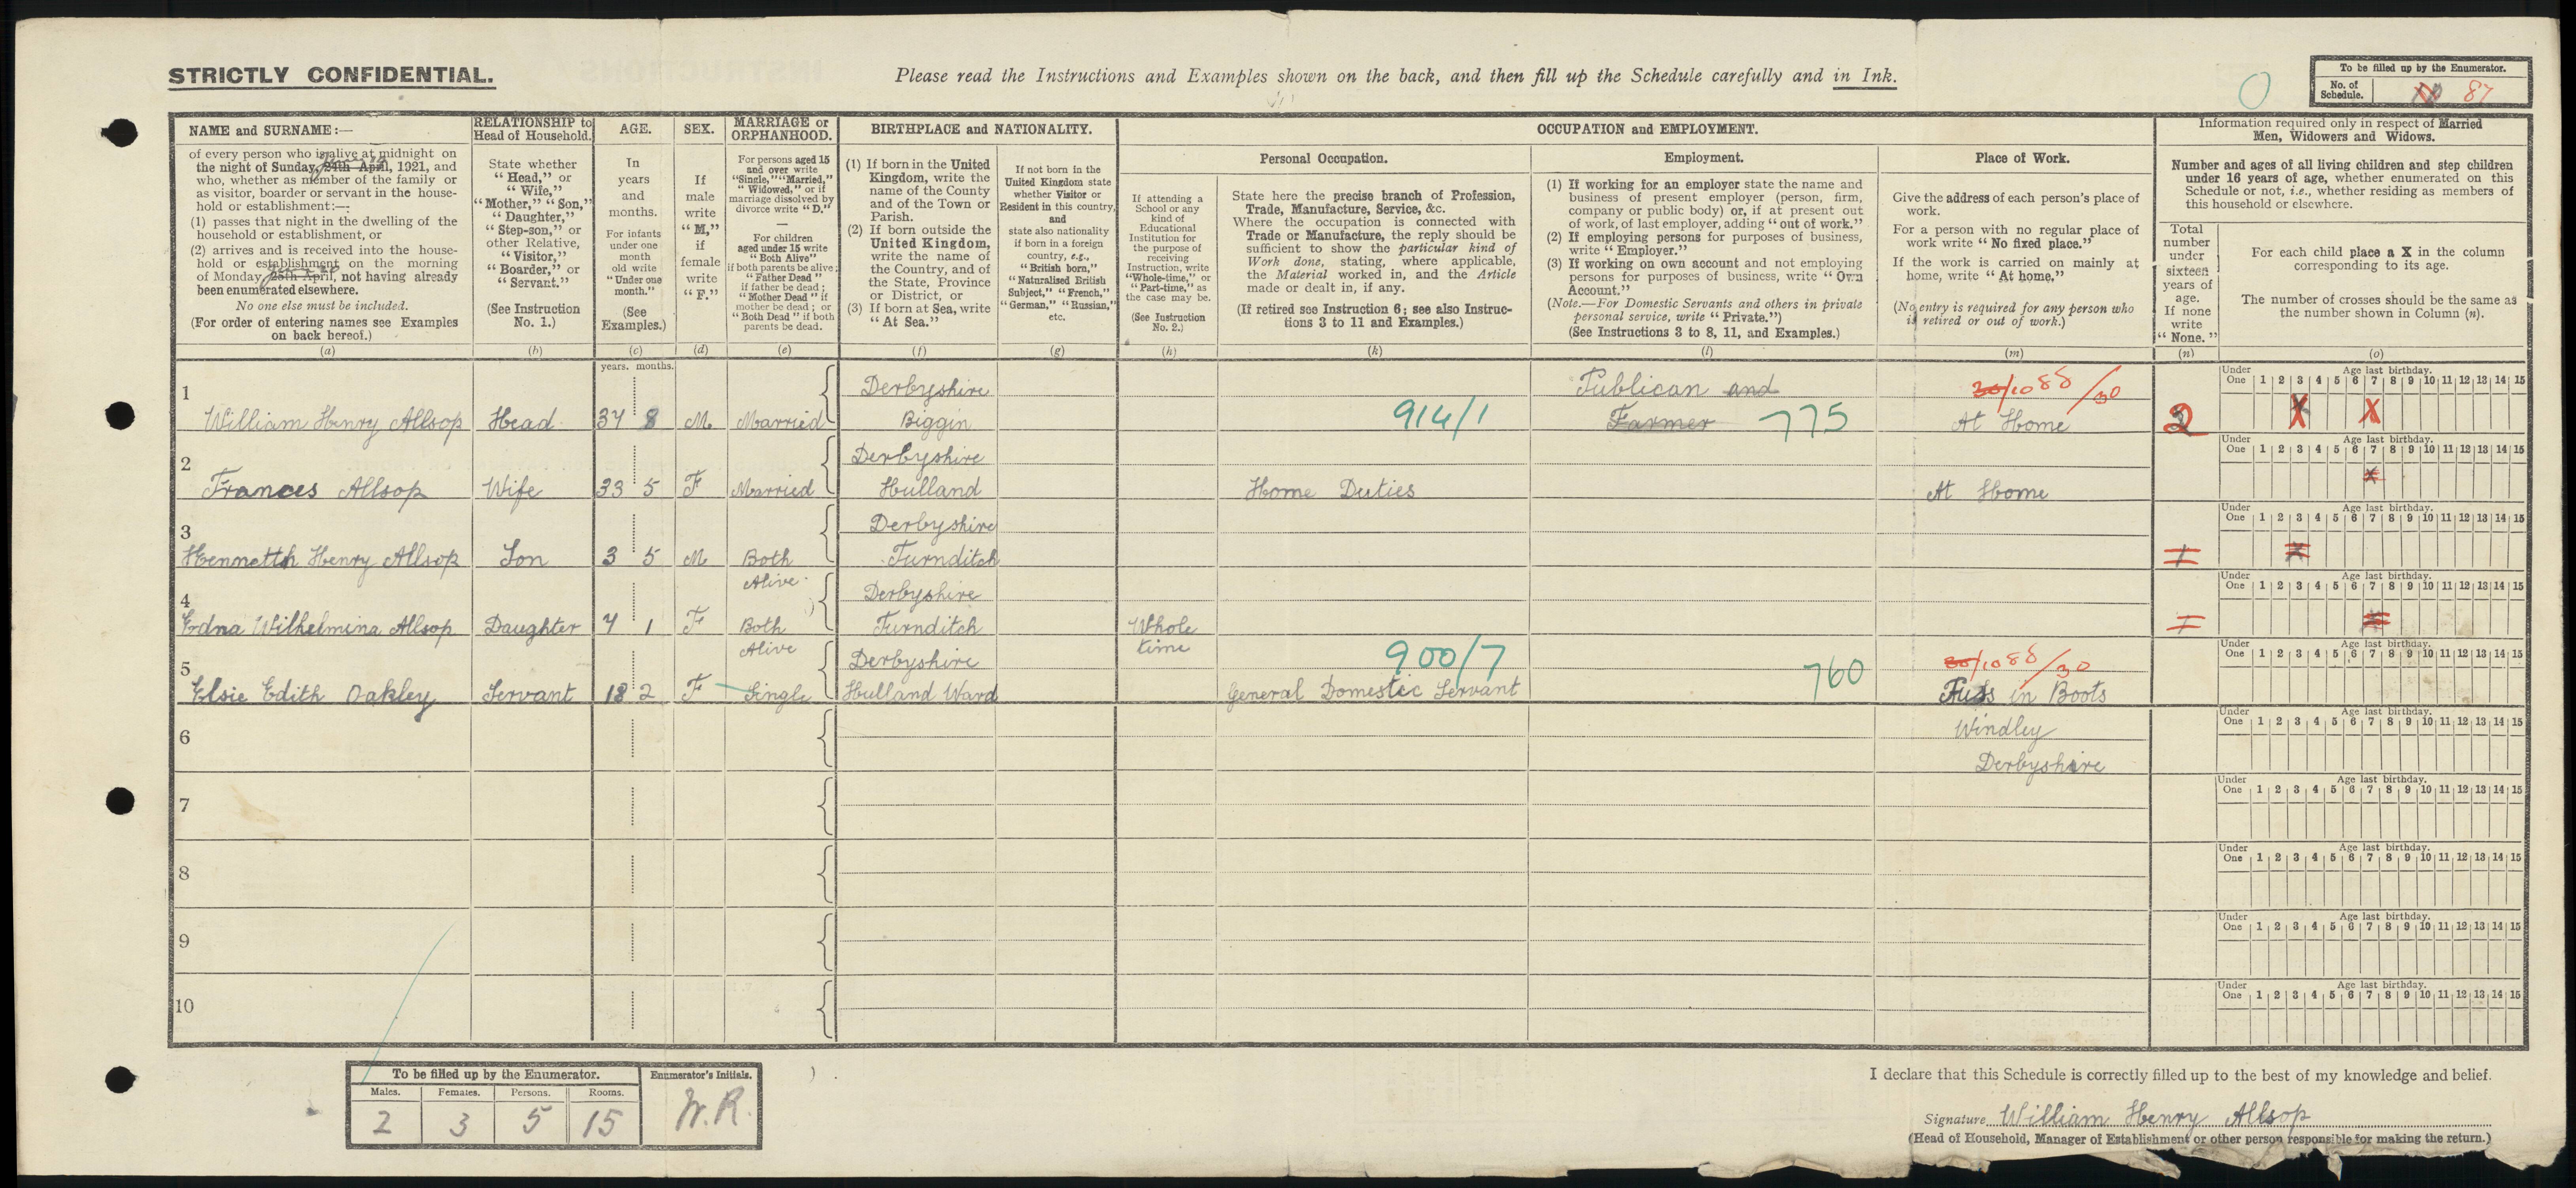 STRICTLY CONFIDENTIAL.
Please read the Instructions and Examples shown on the back, and then fill up the Schedule carefully and in Ink.
To be filled up by the Enumerator.
No. of Schedule. 87
NAME and SURNAME:—
of every person who is alive at midnight on
the night of Sunday, 24th April, 1921, and
who, whether as member of the family or
as visitor, boarder or servant in the house-
hold or establishment:—
(1) passes that night in the dwelling of the
household or establishment, or
(2) arrives and is received into the house-
hold or establishment on the morning
of Monday, 25th April, not having already
been enumerated elsewhere.
No one else must be included.
(For order of entering names see Examples
on back hereof.)
(a)
RELATIONSHIP to
Head of Household.
State whether
"Head," or
"Wife,"
"Mother," "Son,"
"Daughter,"
"Step-son," or
other Relative,
"Visitor,"
"Boarder," or
"Servant."
(See Instruction
No. 1.)
(b)
AGE.
In
years
and
months.
For infants
under one
month
old write
"Under one
month."
(See
Examples.)
(c)
SEX.
If
male
write
"M,"
if
female
write
"F."
(d)
MARRIAGE or
ORPHANHOOD.
For persons aged 15
and over write
"Single," "Married,"
"Widowed," or if
marriage dissolved by
divorce write "D."
—
For children
aged under 15 write
"Both Alive"
if both parents be alive;
"Father Dead"
if father be dead;
"Mother Dead" if
mother be dead; or
"Both Dead" if both
parents be dead.
(e)
BIRTHPLACE and NATIONALITY.
(1) If born in the United
Kingdom, write the
name of the County
and of the Town or
Parish.
(2) If born outside the
United Kingdom,
write the name of
the Country, and of
the State, Province
or District, or
(3) If born at Sea, write
"At Sea."
(f)
If not born in the
United Kingdom state
whether Visitor or
Resident in this country,
and
state also nationality
if born in a foreign
country, e.g.,
"British born,"
"Naturalised British
Subject," "French,"
"German," "Russian,"
etc.
(g)
OCCUPATION and EMPLOYMENT.
If attending a
School or any
kind of
Educational
Institution for
the purpose of
receiving
Instruction, write
"Whole-time," or
"Part-time," as
the case may be.
(See Instruction
No. 2.)
(h)
Personal Occupation.
State here the precise branch of Profession,
Trade, Manufacture, Service, &c.
Where the occupation is connected with
Trade or Manufacture, the reply should be
sufficient to show the particular kind of
Work done, stating, where applicable,
the Material worked in, and the Article
made or dealt in, if any.
(If retired see Instruction 6; see also Instruc-
tions 3 to 11 and Examples.)
(k)
Employment.
(1) If working for an employer state the name and
business of present employer (person, firm,
company or public body) or, if at present out
of work, of last employer, adding "out of work."
(2) If employing persons for purposes of business,
write "Employer."
(3) If working on own account and not employing
persons for purposes of business, write "Own
Account."
(Note.—For Domestic Servants and others in private
personal service, write "Private.")
(See Instructions 3 to 8, 11, and Examples.)
(l)
Place of Work.
Give the address of each person's place of
work.
For a person with no regular place of
work write "No fixed place."
If the work is carried on mainly at
home, write "At home."
(No entry is required for any person who
is retired or out of work.)
(m)
Information required only in respect of Married
Men, Widowers and Widows.
Number and ages of all living children and step children
under 16 years of age, whether enumerated on this
Schedule or not, i.e., whether residing as members of
this household or elsewhere.
Total
number
under
sixteen
years of
age.
If none
write
"None."
(n)
For each child place a X in the column
corresponding to its age.
The number of crosses should be the same as
the number shown in Column (n).
(o)
years. months.
Under One Age last birthday. 1 2 3 4 5 6 7 8 9 10 11 12 13 14 15
1 William Henry Allsop Head 37 8 M Married Derbyshire Biggin 914/1 Publican and Farmer 775 At Home 2 X X
2 Frances Allsop Wife 33 5 F Married Derbyshire Hulland Home Duties At Home
3 Kennetth Henry Allsop Son 3 5 M Both Alive Derbyshire Turnditch
4 Edna Wilhelmina Allsop Daughter 7 1 F Both Alive Derbyshire Turnditch Whole time
5 Elsie Edith Oakley Servant 18 2 F Single Derbyshire Hulland Ward 900/7 General Domestic Servant 760 Puss in Boots
Windley
Derbyshire
6
7
8
9
10
To be filled up by the Enumerator.
Enumerator's Initials.
Males. Females. Persons. Rooms.
2 3 5 15 W.R.
I declare that this Schedule is correctly filled up to the best of my knowledge and belief.
Signature William Henry Allsop
(Head of Household, Manager of Establishment or other person responsible for making the return.)